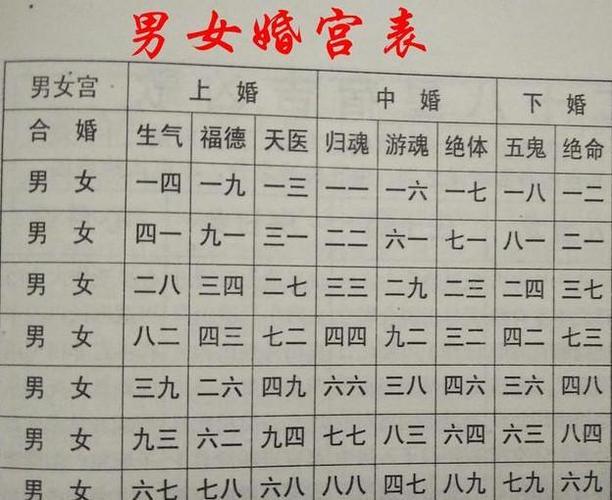 男女婚宫表
男女宫 上婚 中婚 下婚
合婚 生气 福德 天医 归魂 游魂 绝体 五鬼 绝命
男女 一四 一九 一三 一一 一六 一七 一八 一二
男女 四一 九一 三一 二二 六一 七一 八一 二一
男女 二八 三四 二七 三三 二九 二三 二四 三七
男女 八二 四三 七二 四四 九二 三二 四二 七三
男女 三九 二六 四九 六六 三八 四六 三六 四八
男女 九三 六二 九四 七七 八三 六四 六三 八四
男女 六七 七八 六八 八八 四七 八九 七九 六九